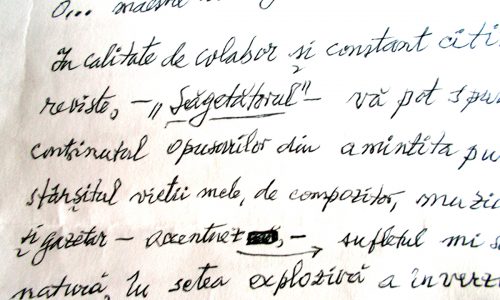 O... maestre
În calitate de colabor și constant citi
reviste, – „Săgetătorul” – vă pot spun
conținutul opusurilor din amintita pu
sfârșitul vieții mele, de compozitor, muzic
și gazetar – accentuez – sufletul mi s
natură, în setea explozivă a inverz